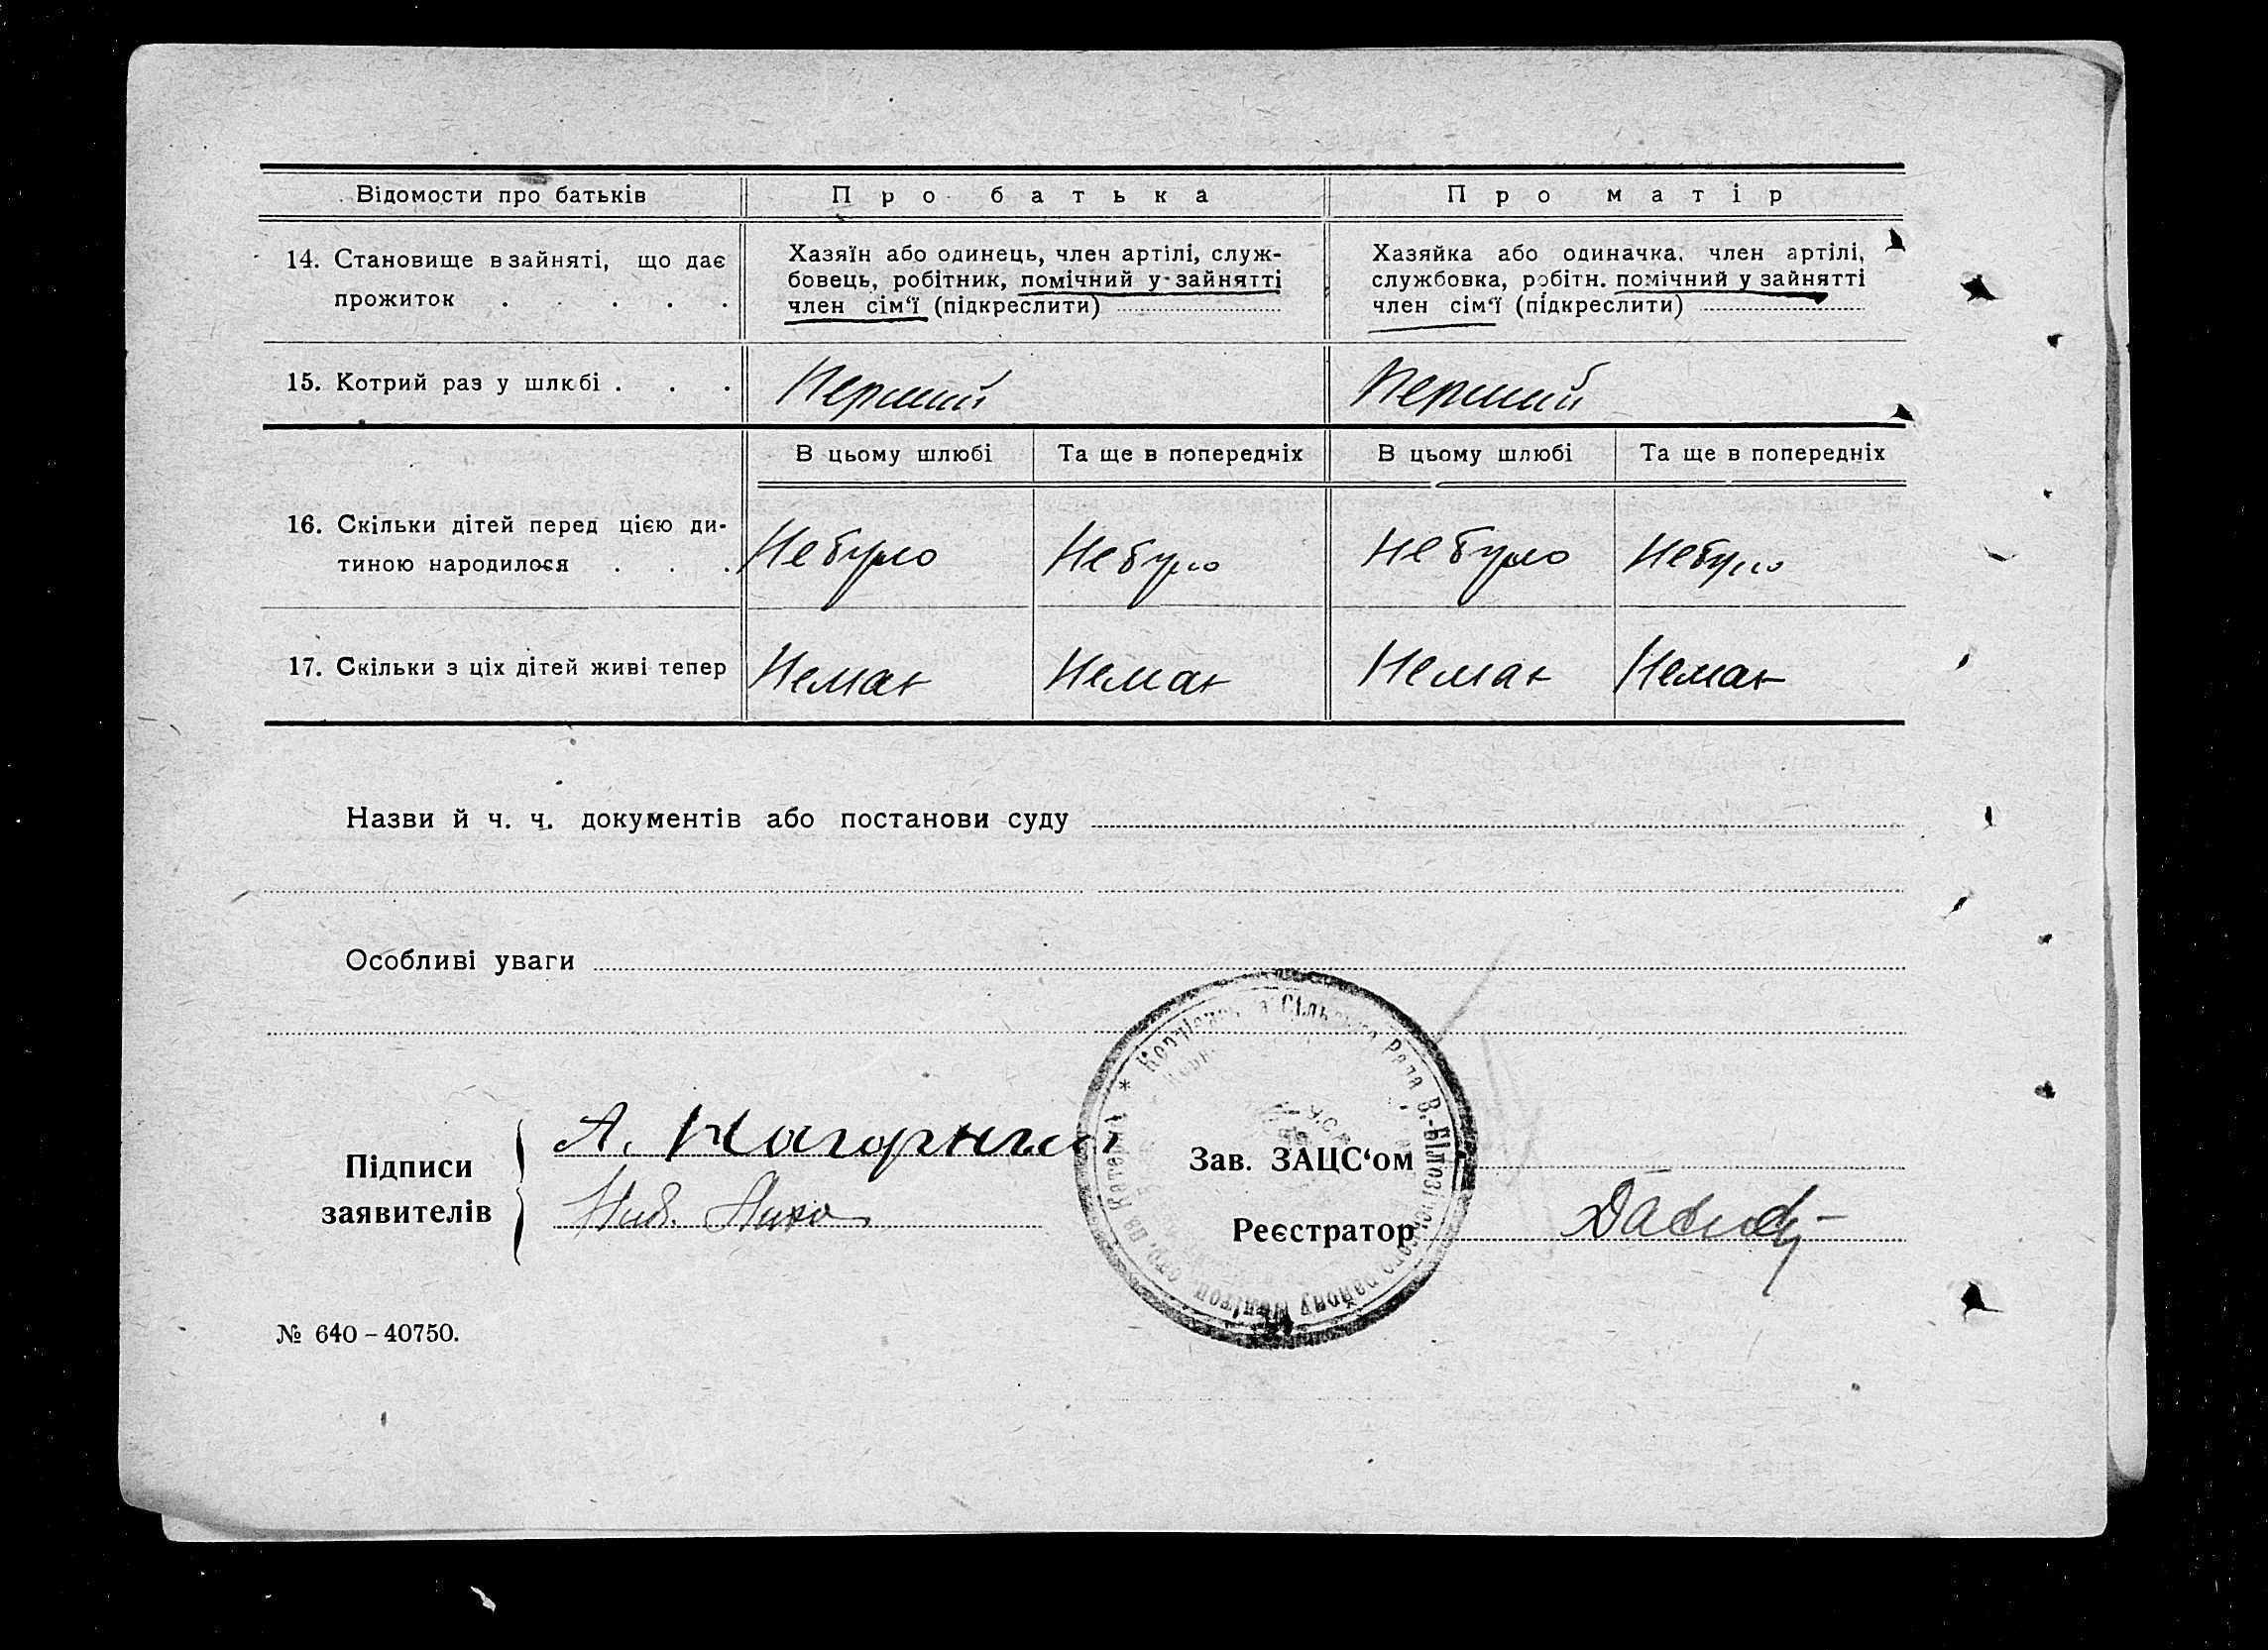 Відомости про батьків Про батька Про матір
14. Становище в зайняті, що дає прожиток . . . . .
Хазяїн або одинець, член артілі, служ-
бовець, робітник, помічний у зайнятті
член сім‘ї (підкреслити)
Хазяйка або одиначка, член артілі,
службовка, робітн. помічний у зайнятті
член сім‘ї (підкреслити)
15. Котрий раз у шлюбі . . . Перший Перший
В цьому шлюбі Та ще в попередніх В цьому шлюбі Та ще в попередніх
16. Скільки дітей перед цією ди-
тиною народилося . . .
Небуло Небуло Небуло Небуло
17. Скільки з ціх дітей живі тепер Немає Немає Немає Немає
Назви й ч. ч. документів або постанови суду
Особливі уваги
Підписи
заявителів
А. Нагорный
Зав. ЗАЦС‘ом
Реєстратор
Сільська Рада В.-Білозірського району Мелітоп. окр. на Катерин.
№ 640 – 40750.